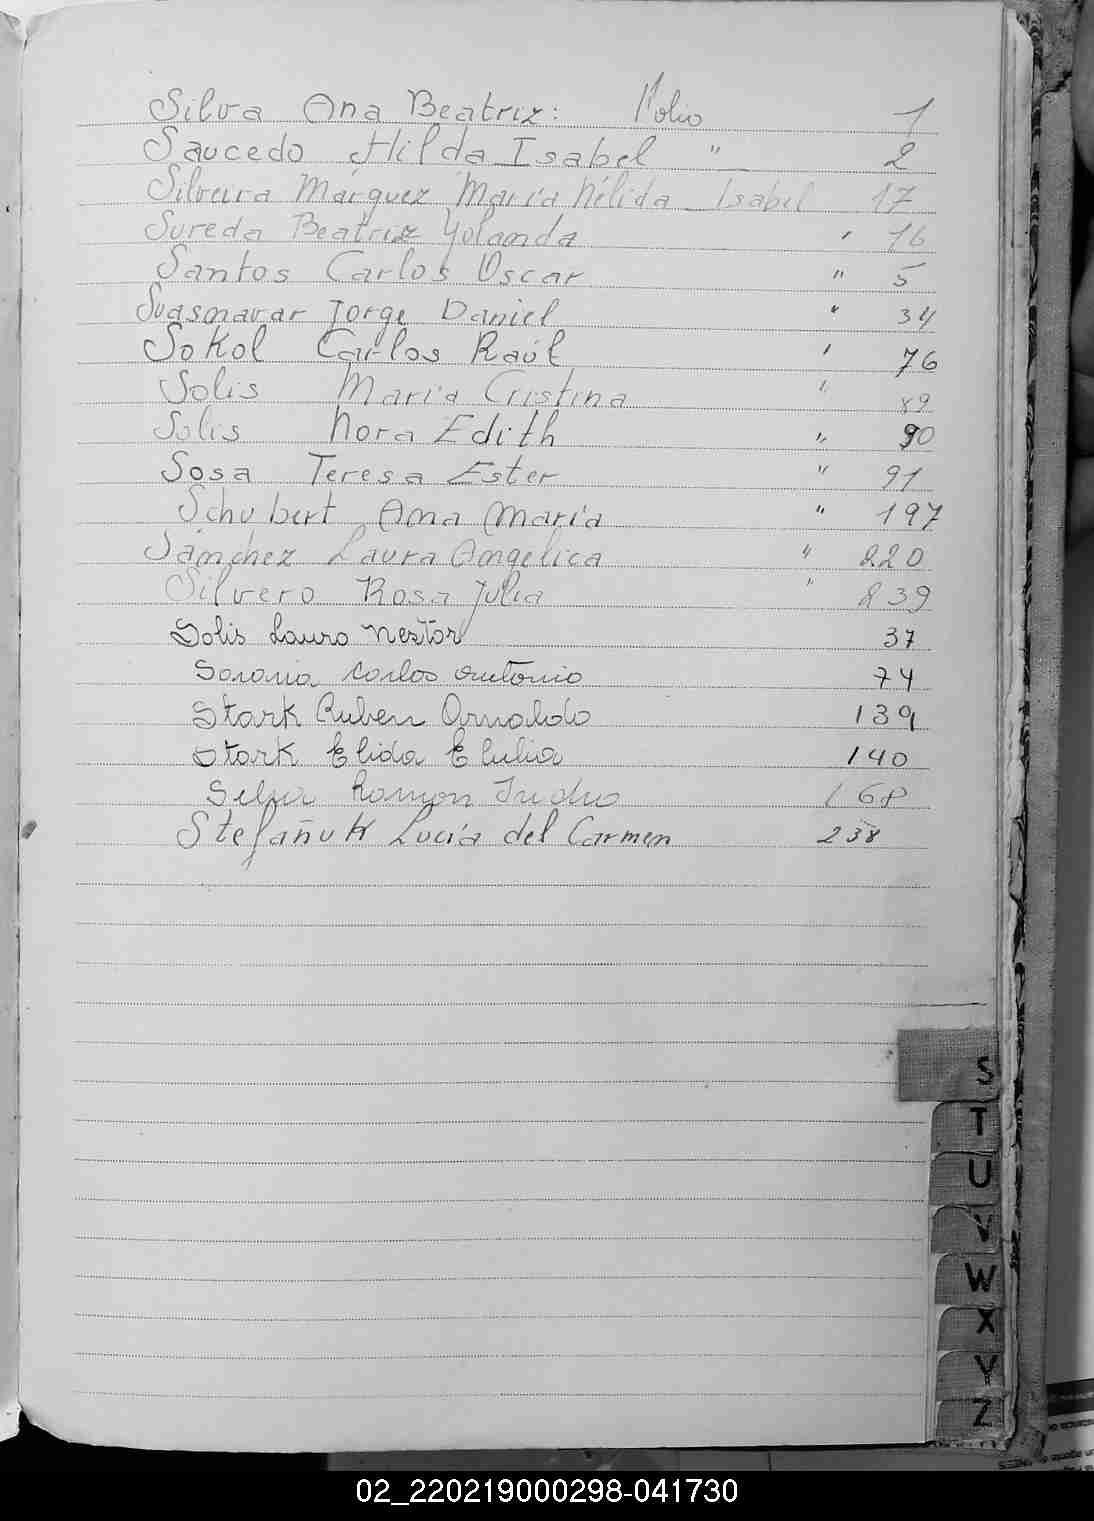 Silva Ana Beatriz: Folio 1
Saucedo Hilda Isabel " 2
Silveira Márquez María Nélida Isabel 17
Sureda Beatriz Yolanda " 16
Santos Carlos Oscar " 5
Suasnavar Jorge Daniel " 34
Sokol Carlos Raúl " 76
Solis María Cristina " 89
Solis Nora Edith " 90
Sosa Teresa Ester " 91
Schubert Ana María " 197
Sánchez Laura Angélica " 220
Silvero Rosa Julia " 239
Solis Lauro Nestor 37
Sorana Carlos Antonio 74
Stark Ruben Arnoldo 139
Stark Elida Elulia 140
Selva Ramon 168
Stefañuk Lucía del Carmen 238
S
T
U
V
W
X
Y
Z
02_220219000298-041730